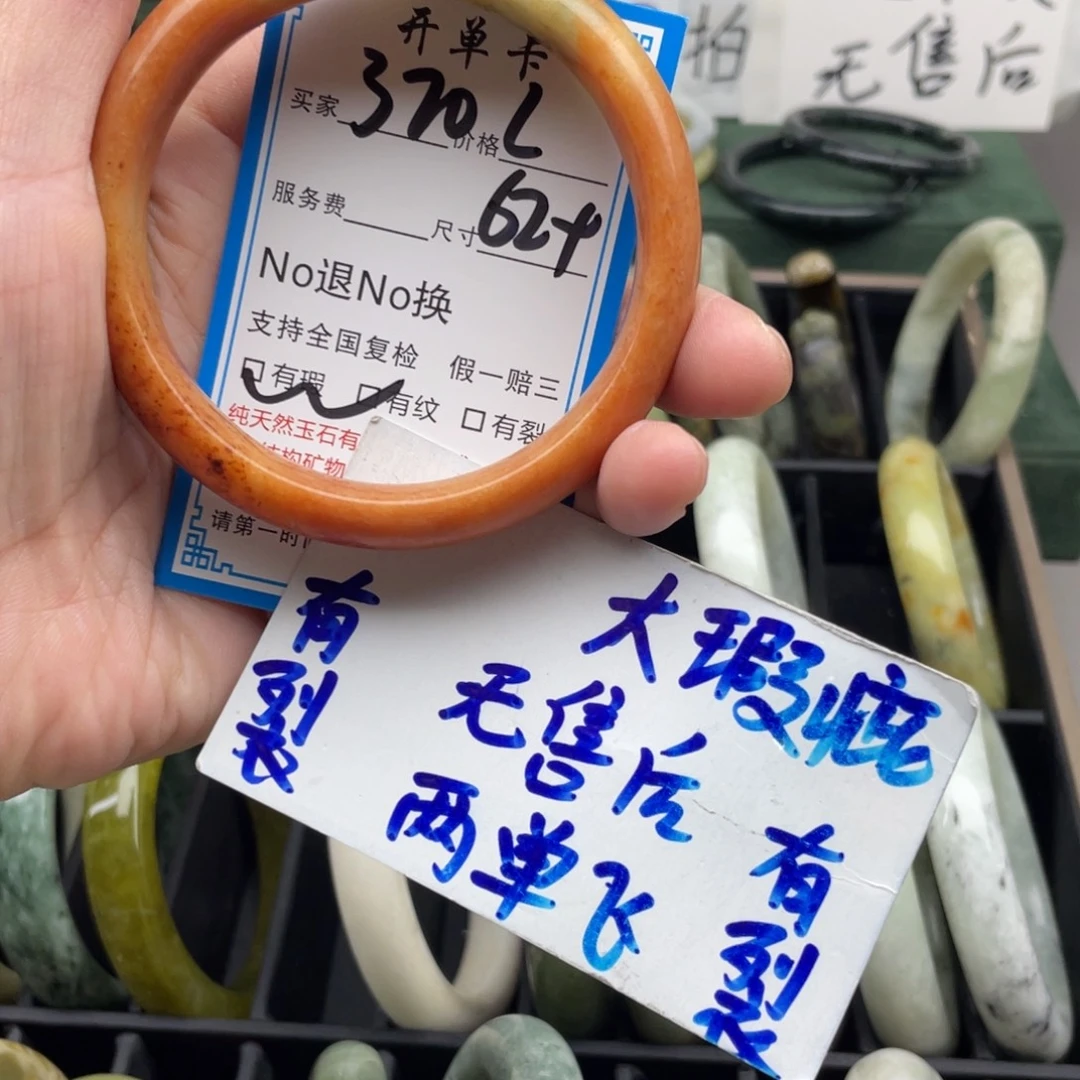 开单卡
买家 370 价格 L
服务费 尺寸 62+
No退No换
支持全国复检 假一赔三
口有瑕 口有纹 口有裂
纯天然玉石有
结构矿物
请第一时
有裂
大瑕疵
无售后
两单飞
有裂
拍
无售后